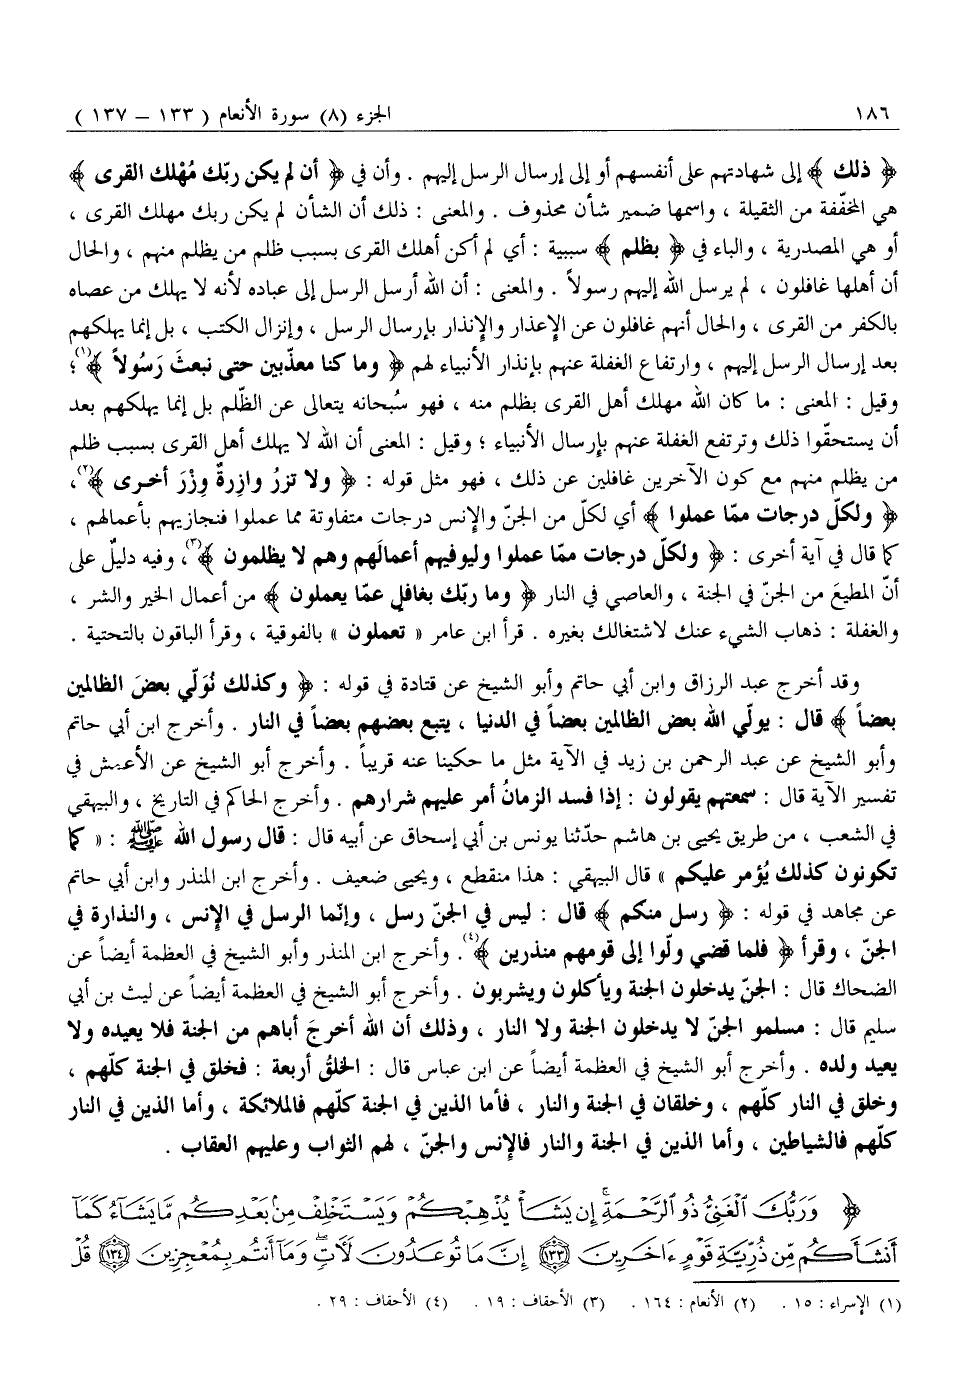 ١٨٦ الجزء (٨) سورة الأنعام ( ١٣٣ – ١٣٧ )
﴿ ذلك ﴾ إلى شهادتهم على أنفسهم أو إلى إرسال الرسل إليهم . وأن في ﴿ أن لم يكن ربّك مُهْلك القرى ﴾
هي المخفّفة من الثقيلة ، واسمها ضمير شأن محذوف . والمعنى : ذلك أن الشأن لم يكن ربك مهلك القرى ،
أو هي المصدرية ، والباء في ﴿ بظلم ﴾ سببية : أي لم أكن أهلك القرى بسبب ظلم من يظلم منهم ، والحال
أن أهلها غافلون ، لم يرسل الله إليهم رسولاً . والمعنى : أن الله أرسل الرسل إلى عباده لأنه لا يهلك من عصاه
بالكفر من القرى ، والحال أنهم غافلون عن الإعذار والإنذار بإرسال الرسل ، وإنزال الكتب ، بل إنما يهلكهم
بعد إرسال الرسل إليهم ، وارتفاع الغفلة عنهم بإنذار الأنبياء لهم ﴿ وما كنا معذّبين حتى نبعثَ رَسُولاً ﴾(١)؛
وقيل : المعنى : ما كان الله مهلك أهل القرى بظلم منه ، فهو سُبحانه يتعالى عن الظّلم بل إنما يهلكهم بعد
أن يستحقّوا ذلك وترتفع الغفلة عنهم بإرسال الأنبياء ؛ وقيل : المعنى أن الله لا يهلك أهل القرى بسبب ظلم
من يظلم منهم مع كون الآخرين غافلين عن ذلك ، فهو مثل قوله : ﴿ ولا تزرُ وازِرةٌ وِزْرَ أخرى ﴾(٢)،
﴿ ولكلّ درجات ممّا عملوا ﴾ أي لكلّ من الجنّ والإنس درجات متفاوتة مما عملوا فنجازيهم بأعمالهم ،
كما قال في آية أخرى : ﴿ ولكلّ درجات ممّا عملوا وليوفيهم أعمالَهم وهم لا يظلمون ﴾(٣)، وفيه دليلٌ على
أنّ المطيعَ من الجنّ في الجنة ، والعاصي في النار ﴿ وما ربّك بغافلٍ عمّا يعملون ﴾ من أعمال الخير والشر ،
والغفلة : ذهاب الشيء عنك لاشتغالك بغيره . قرأ ابن عامر « تعملون » بالفوقية ، وقرأ الباقون بالتحتية .
وقد أخرج عبد الرزاق وابن أبي حاتم وأبو الشيخ عن قتادة في قوله : ﴿ وكذلك نُوَلّي بعضَ الظالمين
بعضاً ﴾ قال : يولّي الله بعض الظالمين بعضاً في الدنيا ، يتبع بعضهم بعضاً في النار . وأخرج ابن أبي حاتم
وأبو الشيخ عن عبد الرحمن بن زيد في الآية مثل ما حكينا عنه قريباً . وأخرج أبو الشيخ عن الأعمش في
تفسير الآية قال : سمعتهم يقولون : إذا فسد الزمانُ أمر عليهم شرارهم . وأخرج الحاكم في التاريخ ، والبيهقي
في الشعب ، من طريق يحيى بن هاشم حدّثنا يونس بن أبي إسحاق عن أبيه قال : قال رسول الله ﷺ : « كما
تكونون كذلك يُؤمر عليكم » قال البيهقي : هذا منقطع ، ويحيى ضعيف . وأخرج ابن المنذر وابن أبي حاتم
عن مجاهد في قوله : ﴿ رسل منكم ﴾ قال : ليس في الجنّ رسل ، وإنّما الرسل في الإنس ، والنذارة في
الجنّ ، وقرأ ﴿ فلما قضي ولّوا إلى قومهم منذرين ﴾(٤). وأخرج ابن المنذر وأبو الشيخ في العظمة أيضاً عن
الضحاك قال : الجنّ يدخلون الجنة ويأكلون ويشربون . وأخرج أبو الشيخ في العظمة أيضاً عن ليث بن أبي
سليم قال : مسلمو الجنّ لا يدخلون الجنة ولا النار ، وذلك أن الله أخرجَ أباهم من الجنة فلا يعيده ولا
يعيد ولده . وأخرج أبو الشيخ في العظمة أيضاً عن ابن عباس قال : الخلقُ أربعة : فخلق في الجنة كلّهم ،
وخلق في النار كلّهم ، وخلقان في الجنة والنار ، فأما الذين في الجنة كلّهم فالملائكة ، وأما الذين في النار
كلّهم فالشياطين ، وأما الذين في الجنة والنار فالإنس والجنّ ، لهم الثواب وعليهم العقاب .
﴿ وَرَبُّكَ الْغَنِيُّ ذُو الرَّحْمَةِ ۚ إِن يَشَأْ يُذْهِبْكُمْ وَيَسْتَخْلِفْ مِنۢ بَعْدِكُم مَّا يَشَآءُ كَمَآ
أَنشَأَكُم مِّن ذُرِّيَّةِ قَوْمٍ ءَاخَرِينَ ١٣٣ إِنَّ مَا تُوعَدُونَ لَآتٍ ۖ وَمَآ أَنتُم بِمُعْجِزِينَ ١٣٤ قُلْ
(١) الإسراء : ١٥ . (٢) الأنعام : ١٦٤ . (٣) الأحقاف : ١٩ . (٤) الأحقاف : ٢٩ .